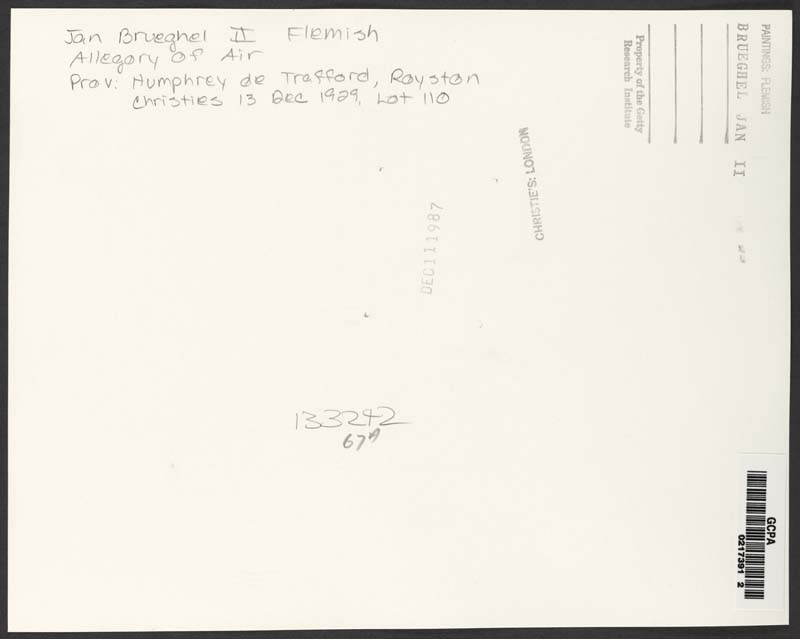 Jan Brueghel II Flemish
Allegory of Air
Prov: Humphrey de Trafford, Royston
Christies 13 Dec 1929, Lot 110
PAINTINGS: FLEMISH
BRUEGHEL JAN II
Property of the Getty
Research Institute
CHRISTIE'S: LONDON
DEC 11 1987
133242
67A
GCPA
0217391 2